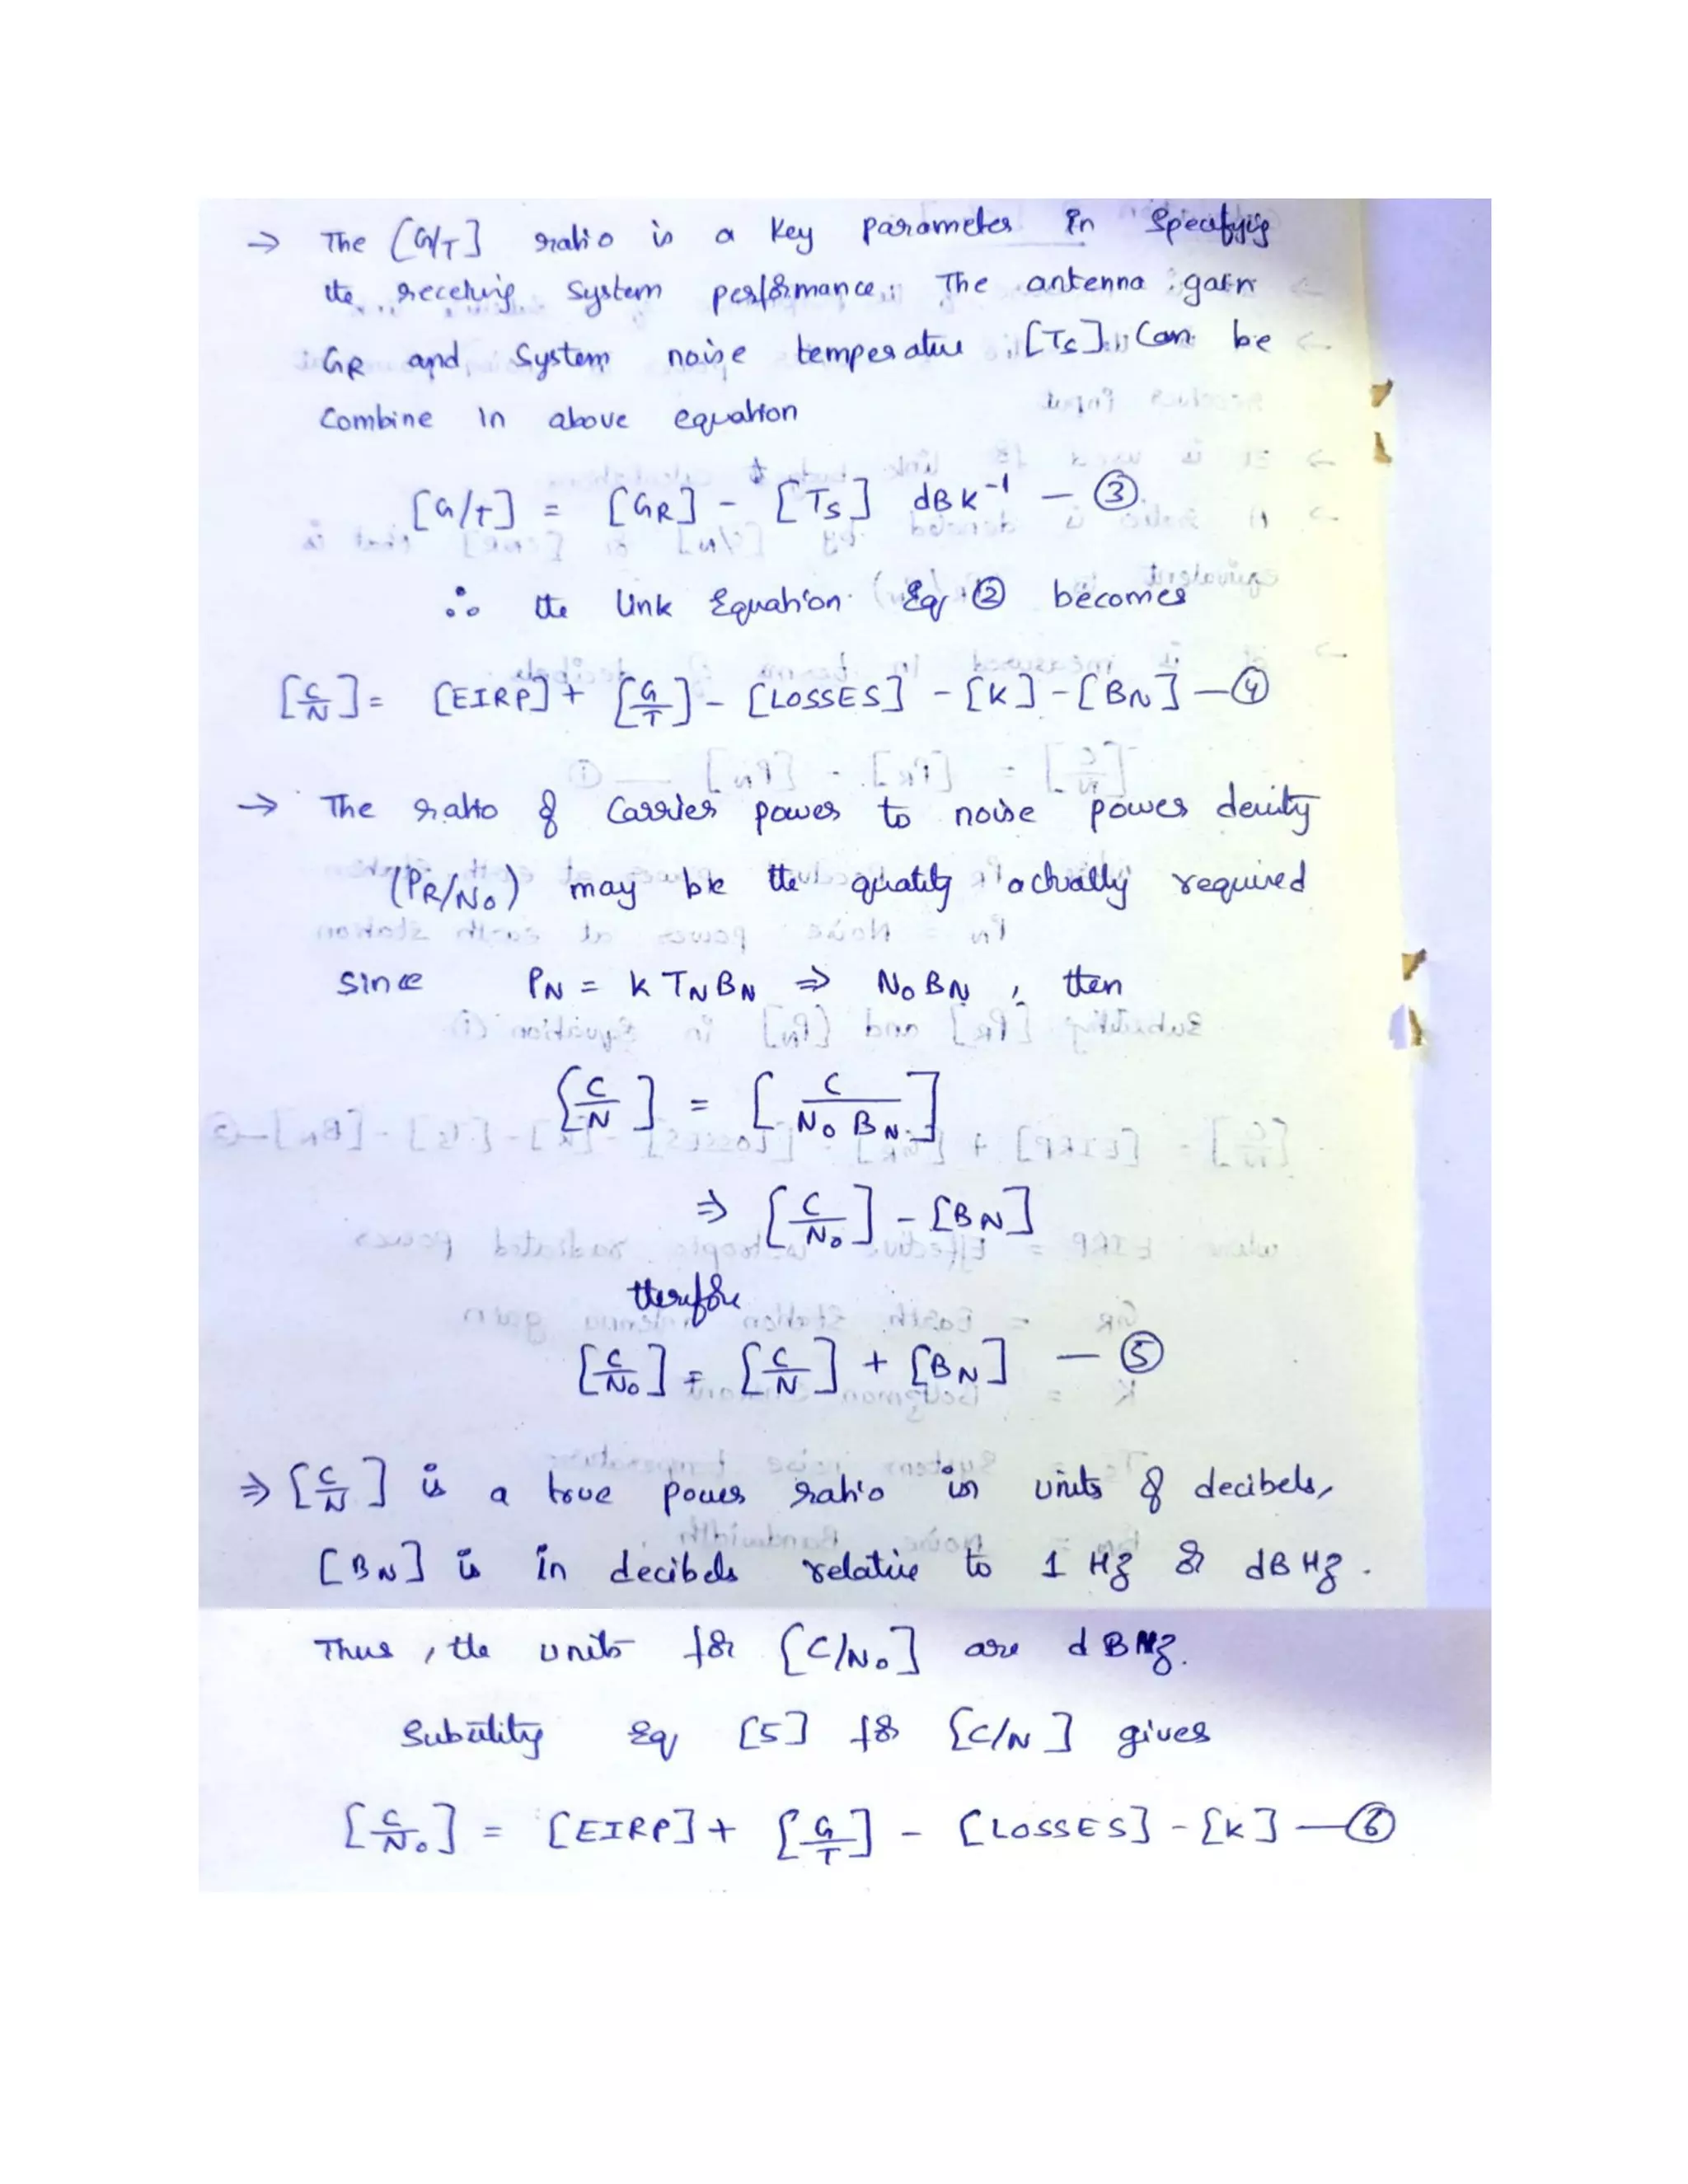 → The [G/T] ratio is a key parameter in Specifying
the receiving System performance. The antenna gain
GR and System noise temperature [Ts] Can be
Combine in above equation
[G/T] = [GR] - [Ts] dBK⁻¹ — ③
∴ the link Equation Eq ② becomes
[C/N] = [EIRP] + [G/T] - [LOSSES] - [K] - [BN] — ④
→ The ratio of Carrier power to noise power density
(PR/No) may be the quatity actually required
since PN = K TN BN ⇒ No BN , then
[C/N] = [C/No BN]
⇒ [C/No] - [BN]
therefore
[C/No] = [C/N] + [BN] — ⑤
⇒ [C/N] is a true power ratio in units of decibels,
[BN] is in decibels relative to 1 Hz or dBHz.
Thus , the units for [C/No] are dBHz.
Eq [5] for [C/N] gives
[C/No] = [EIRP] + [G/T] - [LOSSES] - [K] — ⑥